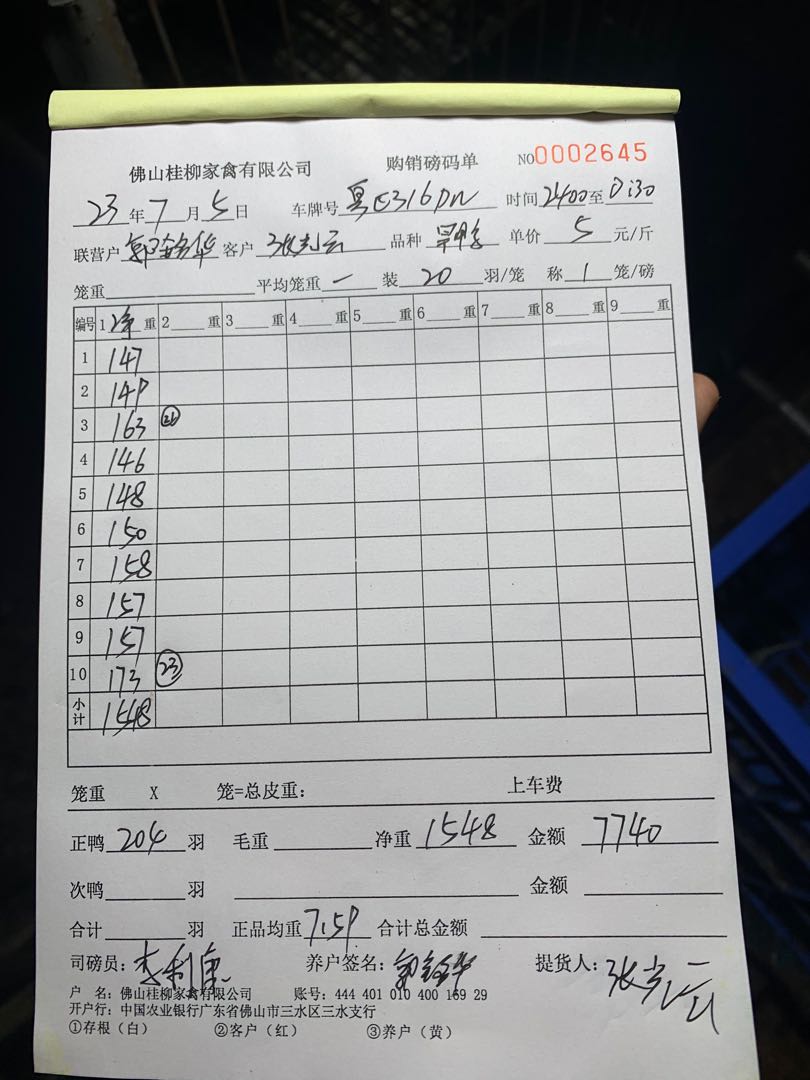 佛山桂柳家禽有限公司 购销磅码单 NO0002645
23年7月5日 车牌号 粤E316DN 时间2400至0:30
联营户 客户 张光云 品种 单价 5 元/斤
笼重 平均笼重 一 装 20 羽/笼 称 1 笼/磅
编号 1净重 2 重 3 重 4 重 5 重 6 重 7 重 8 重 9 重
1 147
2 149
3 163 21
4 146
5 148
6 150
7 158
8 157
9 157
10 173 23
小计 1548
笼重 X 笼=总皮重: 上车费
正鸭 204 羽 毛重 净重 1548 金额 7740
次鸭 羽 金额
合计 羽 正品均重 7.59 合计总金额
司磅员: 养户签名: 提货人: 张光云
户 名: 佛山桂柳家禽有限公司 账号: 444 401 010 400 159 29
开户行: 中国农业银行广东省佛山市三水区三水支行
①存根(白) ②客户(红) ③养户(黄)